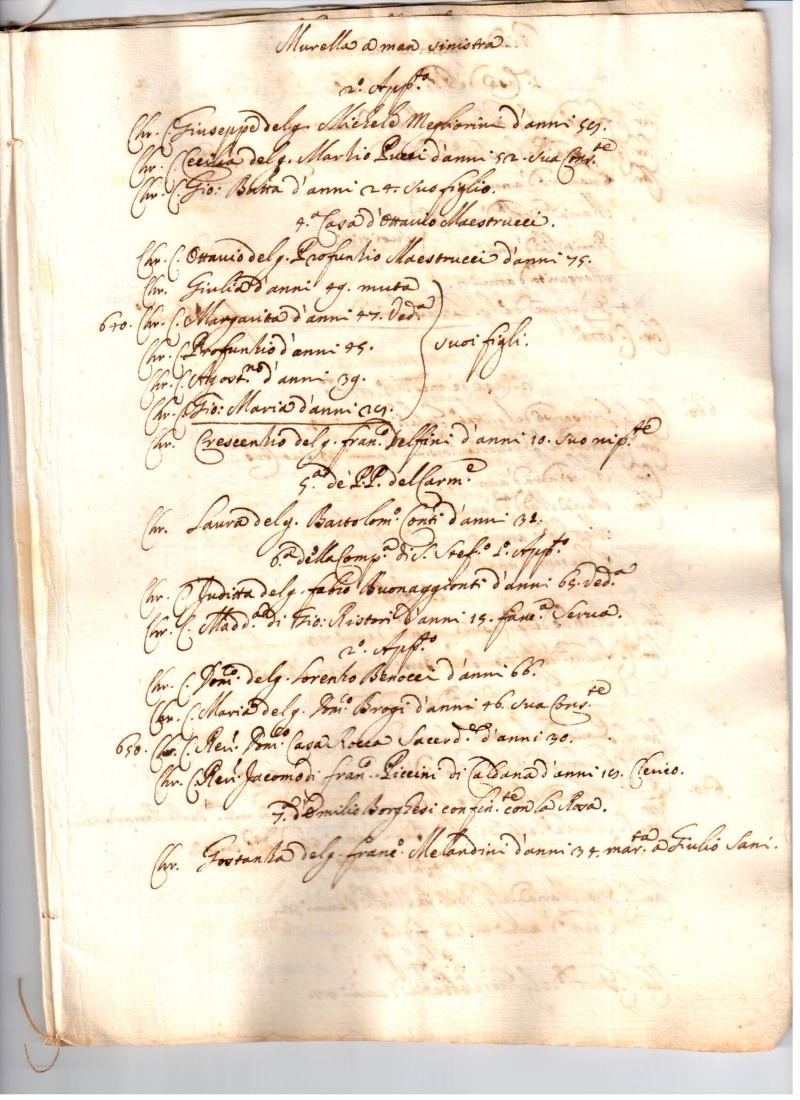 Murella a man sinistra.
2.° App.to
Chr. C. Giuseppe del q. Michele Megliorini d'anni 59.
Chr. C. Cecilia del q. Martio Pucci d'anni 52. sua Cons.te
Chr. C. Gio: Batta d'anni 24. suo figlio.
4.a Casa d'Ottavio Maestrucci.
Chr. C. Ottavio del q. Profuntio Maestrucci d'anni 75.
Chr. Giulia d'anni 49. muta
640. Chr. C. Margarita d'anni 47. Ved.a
suoi figli.
Chr. C. Profuntio d'anni 45.
Chr. C. Agost.no d'anni 39.
Chr. C. Gio: Maria d'anni 29.
Chr. Crescentio del q. Fran.o Delfini d'anni 10. suo nip.te
5.a de P.P. del Carm.e
Chr. Laura del q. Bartolom.o Conti d'anni 31.
6.a della Comp.a di S. Stef.o 1.° App.to
Chr. C. Juditta del q. Fabio Buonaggionti d'anni 65. Ved.a
Chr. C. Madd.a di Gio: Ristori d'anni 15. fanc.a Serva.
2.° App.to
Chr. C. Dom.co del q. Lorenzo Benocci d'anni 66.
Chr. C. Maria del q. Dom.o Brogi d'anni 46. sua Cons.te
650. Chr. C. Rev. Dom.co Casa Rocca Sacerd.e d'anni 30.
Chr. C. Rev. Jacomo di Fran.o Piccini di Caldana d'anni 19. Clerico.
7.a d'Emilio Borghesi confin.te con la Rosa.
Chr. Gostanza del q. Franc.o Melandini d'anni 34. mar.ta a Giulio Sani.